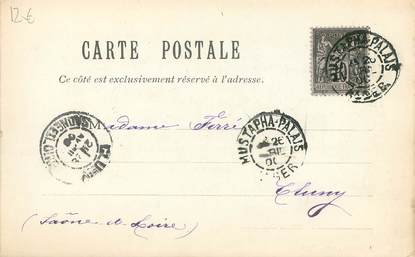 12€
CARTE POSTALE
Ce côté est exclusivement réservé à l'adresse.
MUSTAPHA-PALAIS
ALGER
Madame Ferré
MUSTAPHA-PALAIS
26
ALGER
CLUNY
SAÔNE-ET-LOIRE
Cluny
(Saône-&-Loire)